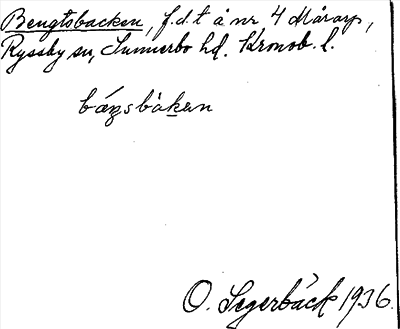 Bengtsbacken, f.d.t å nr 4 Mårarp,
Ryssby sn, Sunnerbo hd. Kronob. l.
O. Segerbäck 1936.